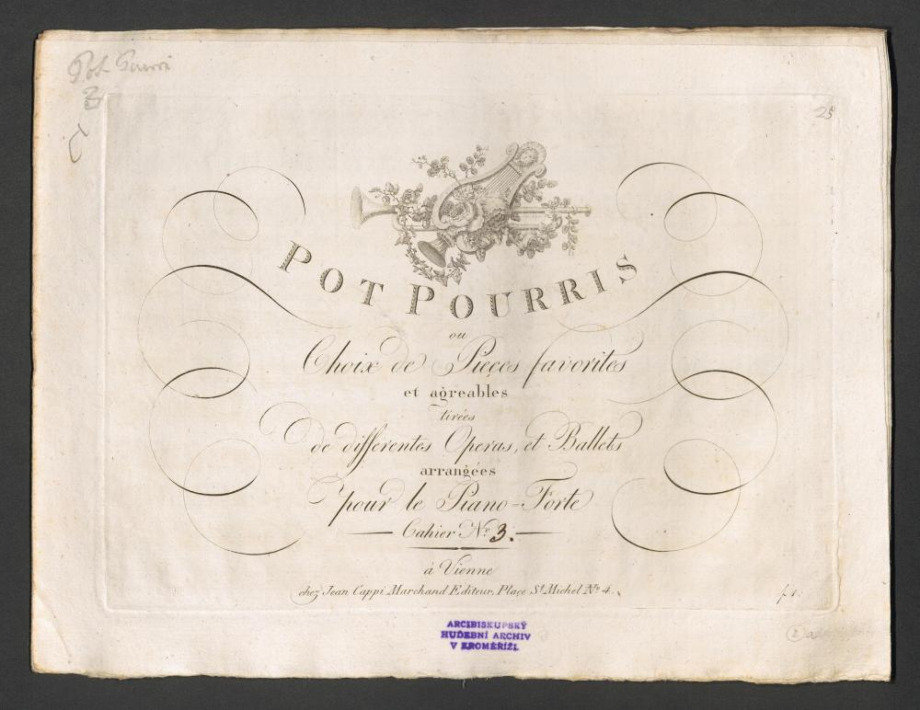 Pot Pourri
3
25
POT POURRIS
ou
Choix de Pieçes favorites
et agreables
tirées
de differentes Operas, et Ballets
arrangées
pour le Piano-Forte
Cahier No 3.
à Vienne
chez Jean Cappi Marchand Editeur, Plaçe St Michel No 4.
ARCIBISKUPSKÝ
HUDEBNÍ ARCHIV
V KROMĚŘÍŽI.